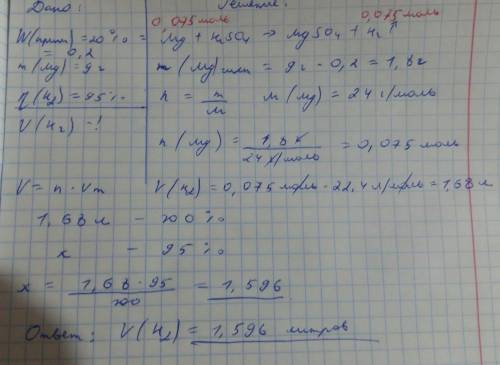 Дано: Решение:
0,075 моль 0,075 моль
W(прим) = 20% = Mg + H2SO4 → MgSO4 + H2↑
= 0,2
m(Mg) = 9г m(Mg) = 9г · 0,2 = 1,8г
η(H2) = 95% n = m/M M(Mg) = 24 г/моль
V(H2) - ?
n(Mg) = 1,8 г / 24 г/моль = 0,075 моль
V = n · Vm V(H2) = 0,075 моль · 22,4 л/моль = 1,68 л
1,68 л - 100%
x - 95%
x = 1,68 · 95 / 100 = 1,596
Ответ: V(H2) = 1,596 литров